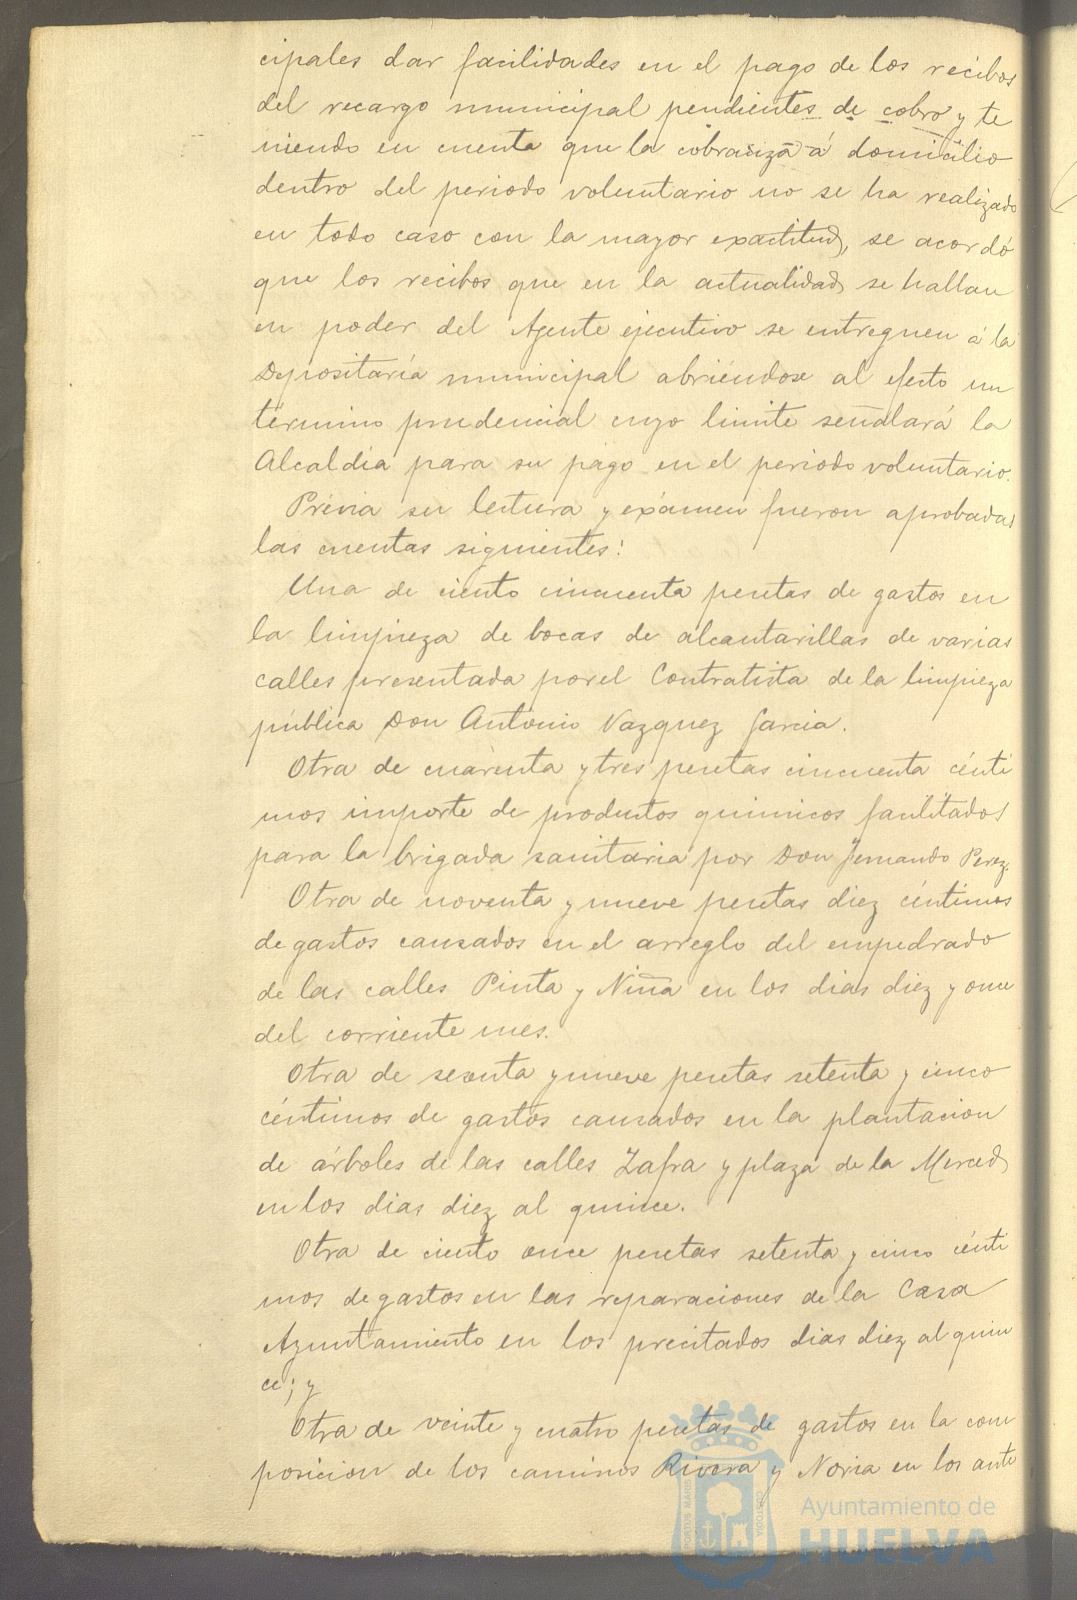 cipales dar facilidades en el pago de los recibos
del recargo municipal pendientes de cobro y te
niendo en cuenta que la cobranza á domicilio
dentro del periodo voluntario no se ha realizado
en todo caso con la mayor exactitud, se acordó
que los recibos que en la actualidad se hallan
en poder del Agente ejecutivo se entreguen á la
Depositaría municipal abriéndose al efecto un
término prudencial cuyo limite señalará la
Alcaldia para su pago en el periodo voluntario.
Prévia su lectura y exámen fueron aprobadas
las cuentas siguientes:
Una de ciento cincuenta pesetas de gastos en
la limpieza de bocas de alcantarillas de varias
calles presentada por el Contratista de la limpieza
pública Don Antonio Vazquez Garcia.
Otra de cuarenta y tres pesetas cincuenta cénti
mos importe de productos quimicos facilitados
para la brigada sanitaria por Don Fernando Perez.
Otra de noventa y nueve pesetas diez céntimos
de gastos causados en el arreglo del empedrado
de las calles Pinta y Niña en los dias diez y once
del corriente mes.
Otra de sesenta y nueve pesetas setenta y cinco
céntimos de gastos causados en la plantacion
de árboles de las calles Zafra y plaza de la Merced
en los dias diez al quince.
Otra de ciento once pesetas setenta y cinco cénti
mos de gastos en las reparaciones de la Casa
Ayuntamiento en los precitados dias diez al quin
ce; y
Otra de veinte y cuatro pesetas de gastos en la com
posicion de los caminos Rivera y Noria en los ante
PORTUS MARIS
CUSTODIA
Ayuntamiento de
HUELVA